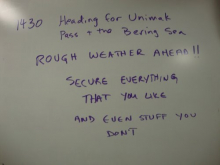 1430 Heading for Unimak
Pass + the Bering Sea
ROUGH WEATHER AHEAD!!
SECURE EVERYTHING
THAT YOU LIKE
AND EVEN STUFF YOU
DON'T